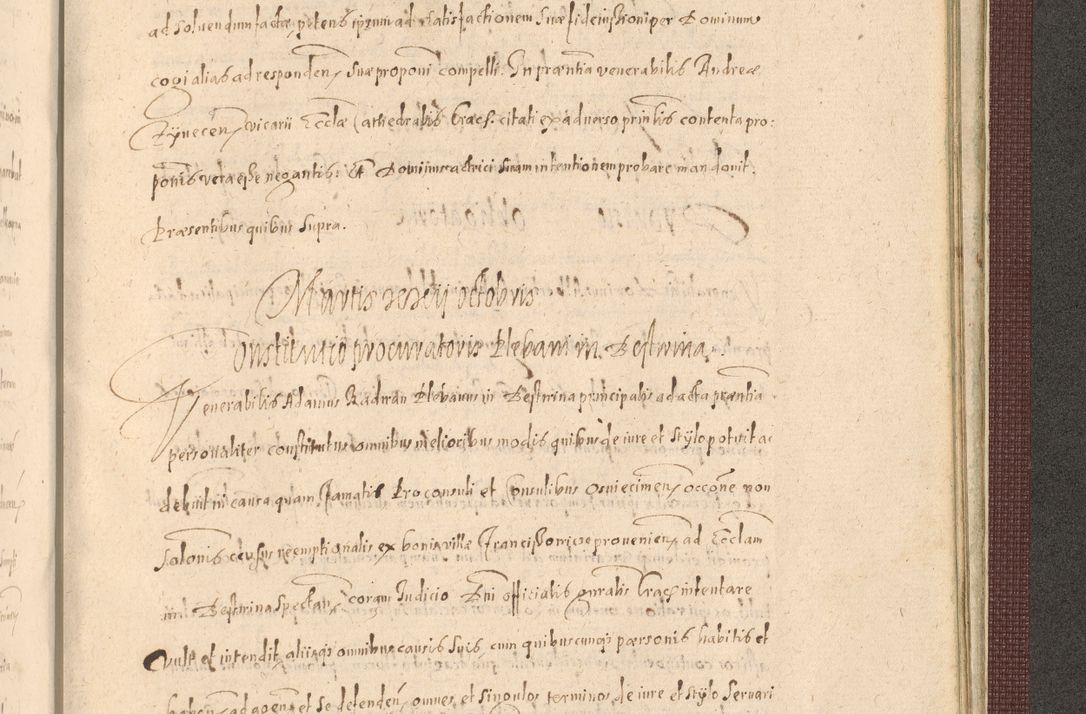 ad soluendum factæ, petens ipsum ad satisfactionem suæ fideiussioni per Dominum
cogi alias ad responden suæ proponi compelli. In præntia venerabilis Andreæ
vicarii Eccłæ Cathedralis Crac. citati ex adverso prints contenta pro:
ponis vera esse negantis: Et Dominus actrici suam intentionem probare mandavit.
Præsentibus quibus supra.
Martis octobris
Constitutio procuratoris Plebani in Bestwina.
Venerabilis Adamus Radwan Plebanus in Bestwina principalis ad acta præntia
personaliter constitutus omnibus melioribus modis quibus de iure et stylo potuit ac
debuit in causa quam famatis Proconsuli et Consulibus Osviecimen occone non
solonis census reemptionalis ex bonis villæ provenien ad Eccłam
in Bestwina spectan coram Iudicio Dni officialis gnralis Crac intentare
vult et intendit aliisqs omnibus causis suis, cum quibuscunqs personis habitis et
haben ad agen et se defenden omnes et singulos terminos de iure et stylo servari